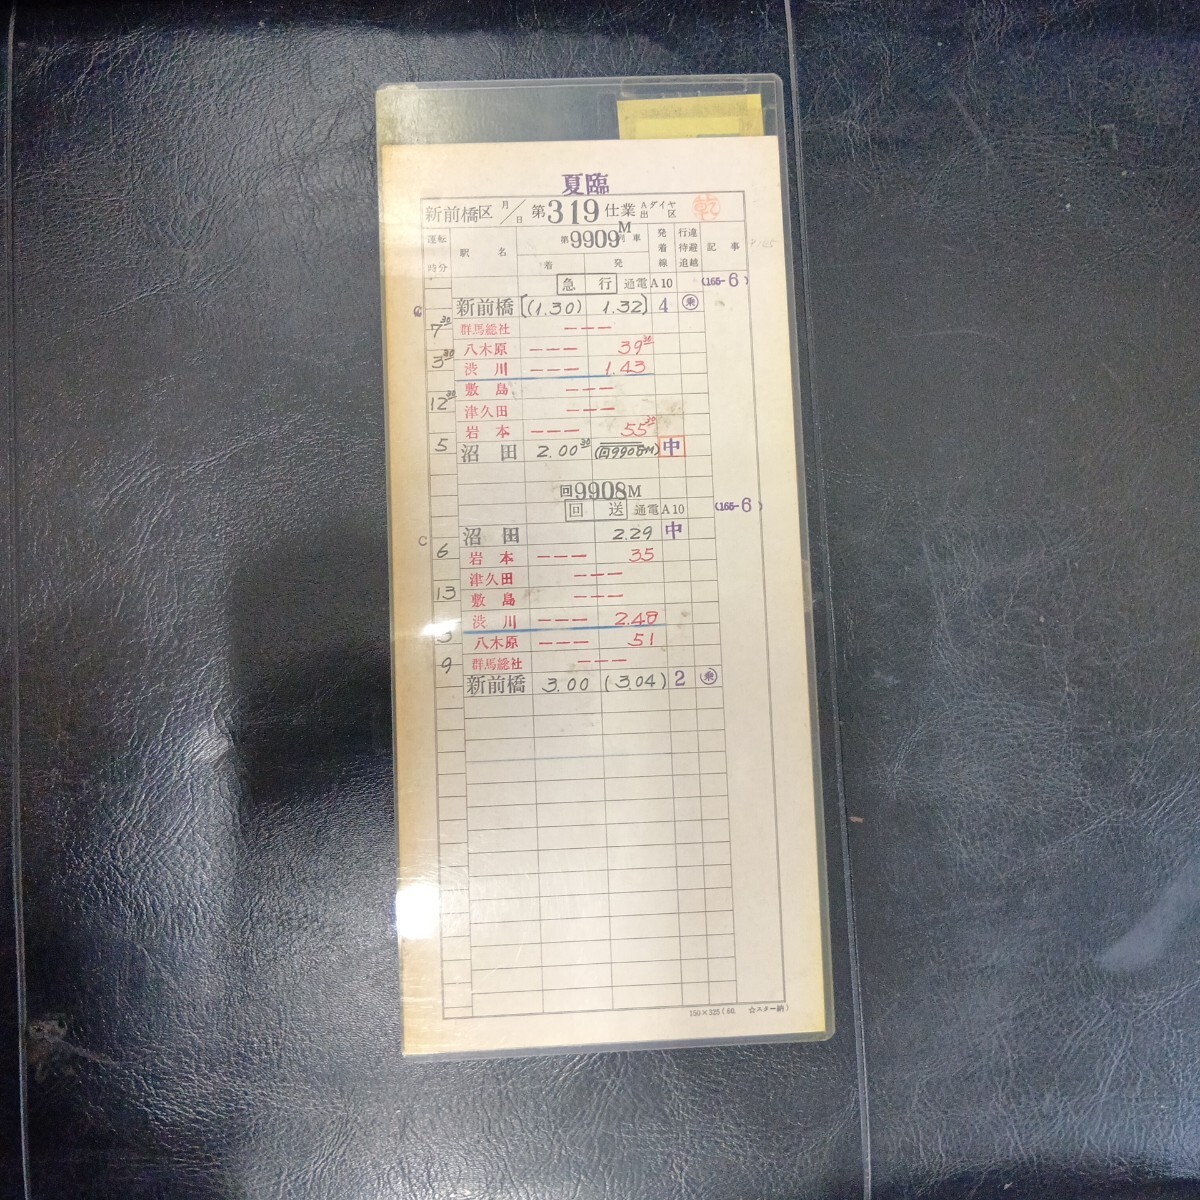 夏臨
新前橋区 月/日 第319仕業 Aダイヤ 出区 乾
運転時分 駅名 第9909M列車 着 発 発着線 行違待避追越 記事
急行 通電A10 (165-6)
新前橋 (1.30) 1.32 4 乗
7 30
群馬総社 ---
八木原 --- 39 30
3 30
渋川 --- 1.43
敷島 ---
12 30
津久田 ---
岩本 --- 55 30
5
沼田 2.00 30 (回9908M) 中
回9908M
回送 通電A10 (165-6)
C
沼田 2.29 中
6
岩本 --- 35
津久田 ---
13
敷島 ---
渋川 --- 2.48
3
八木原 --- 51
9
群馬総社 ---
新前橋 3.00 (3.04) 2 乗
150×325(60. ☆スター納)